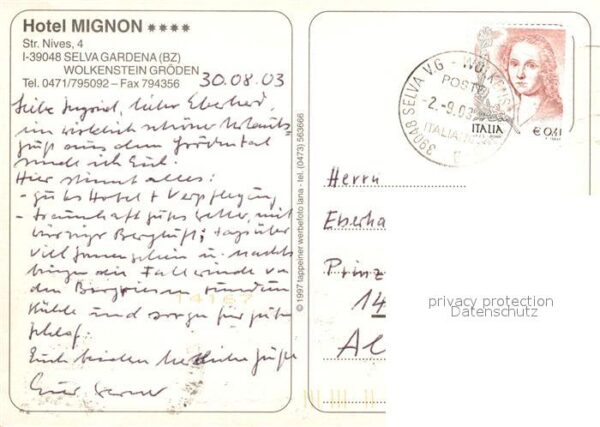 Hotel MIGNON ****
Str. Nives, 4
I-39048 SELVA GARDENA (BZ)
WOLKENSTEIN GRÖDEN
Tel. 0471/795092 – Fax 794356
30.08.03
Liebe Ingrid, lieber Eberhard,
ein wirklich schöner Urlaubs-
gruß aus dem Grödental
sende ich Euch.
Hier stimmt alles:
- gutes Hotel + Verpflegung
- traumhaft gutes Wetter, mit
würziger Bergluft; tagsüber
viel Sonnenschein u. nachts
bringen die Fallwinde von
den Bergriesen
Kühle und sorgen für guten
Schlaf.
Euch beiden herzliche Grüße
Euer Werner
14167
© 1997 tappeiner werbefoto lana - tel. (0473) 563666
39048 SELVA VG - WOLKENST
POSTE
-2.-9.03
ITALIA
ITALIA
€ 0,41
Herrn
Eberha
Prinz
14
Al
privacy protection
Datenschutz